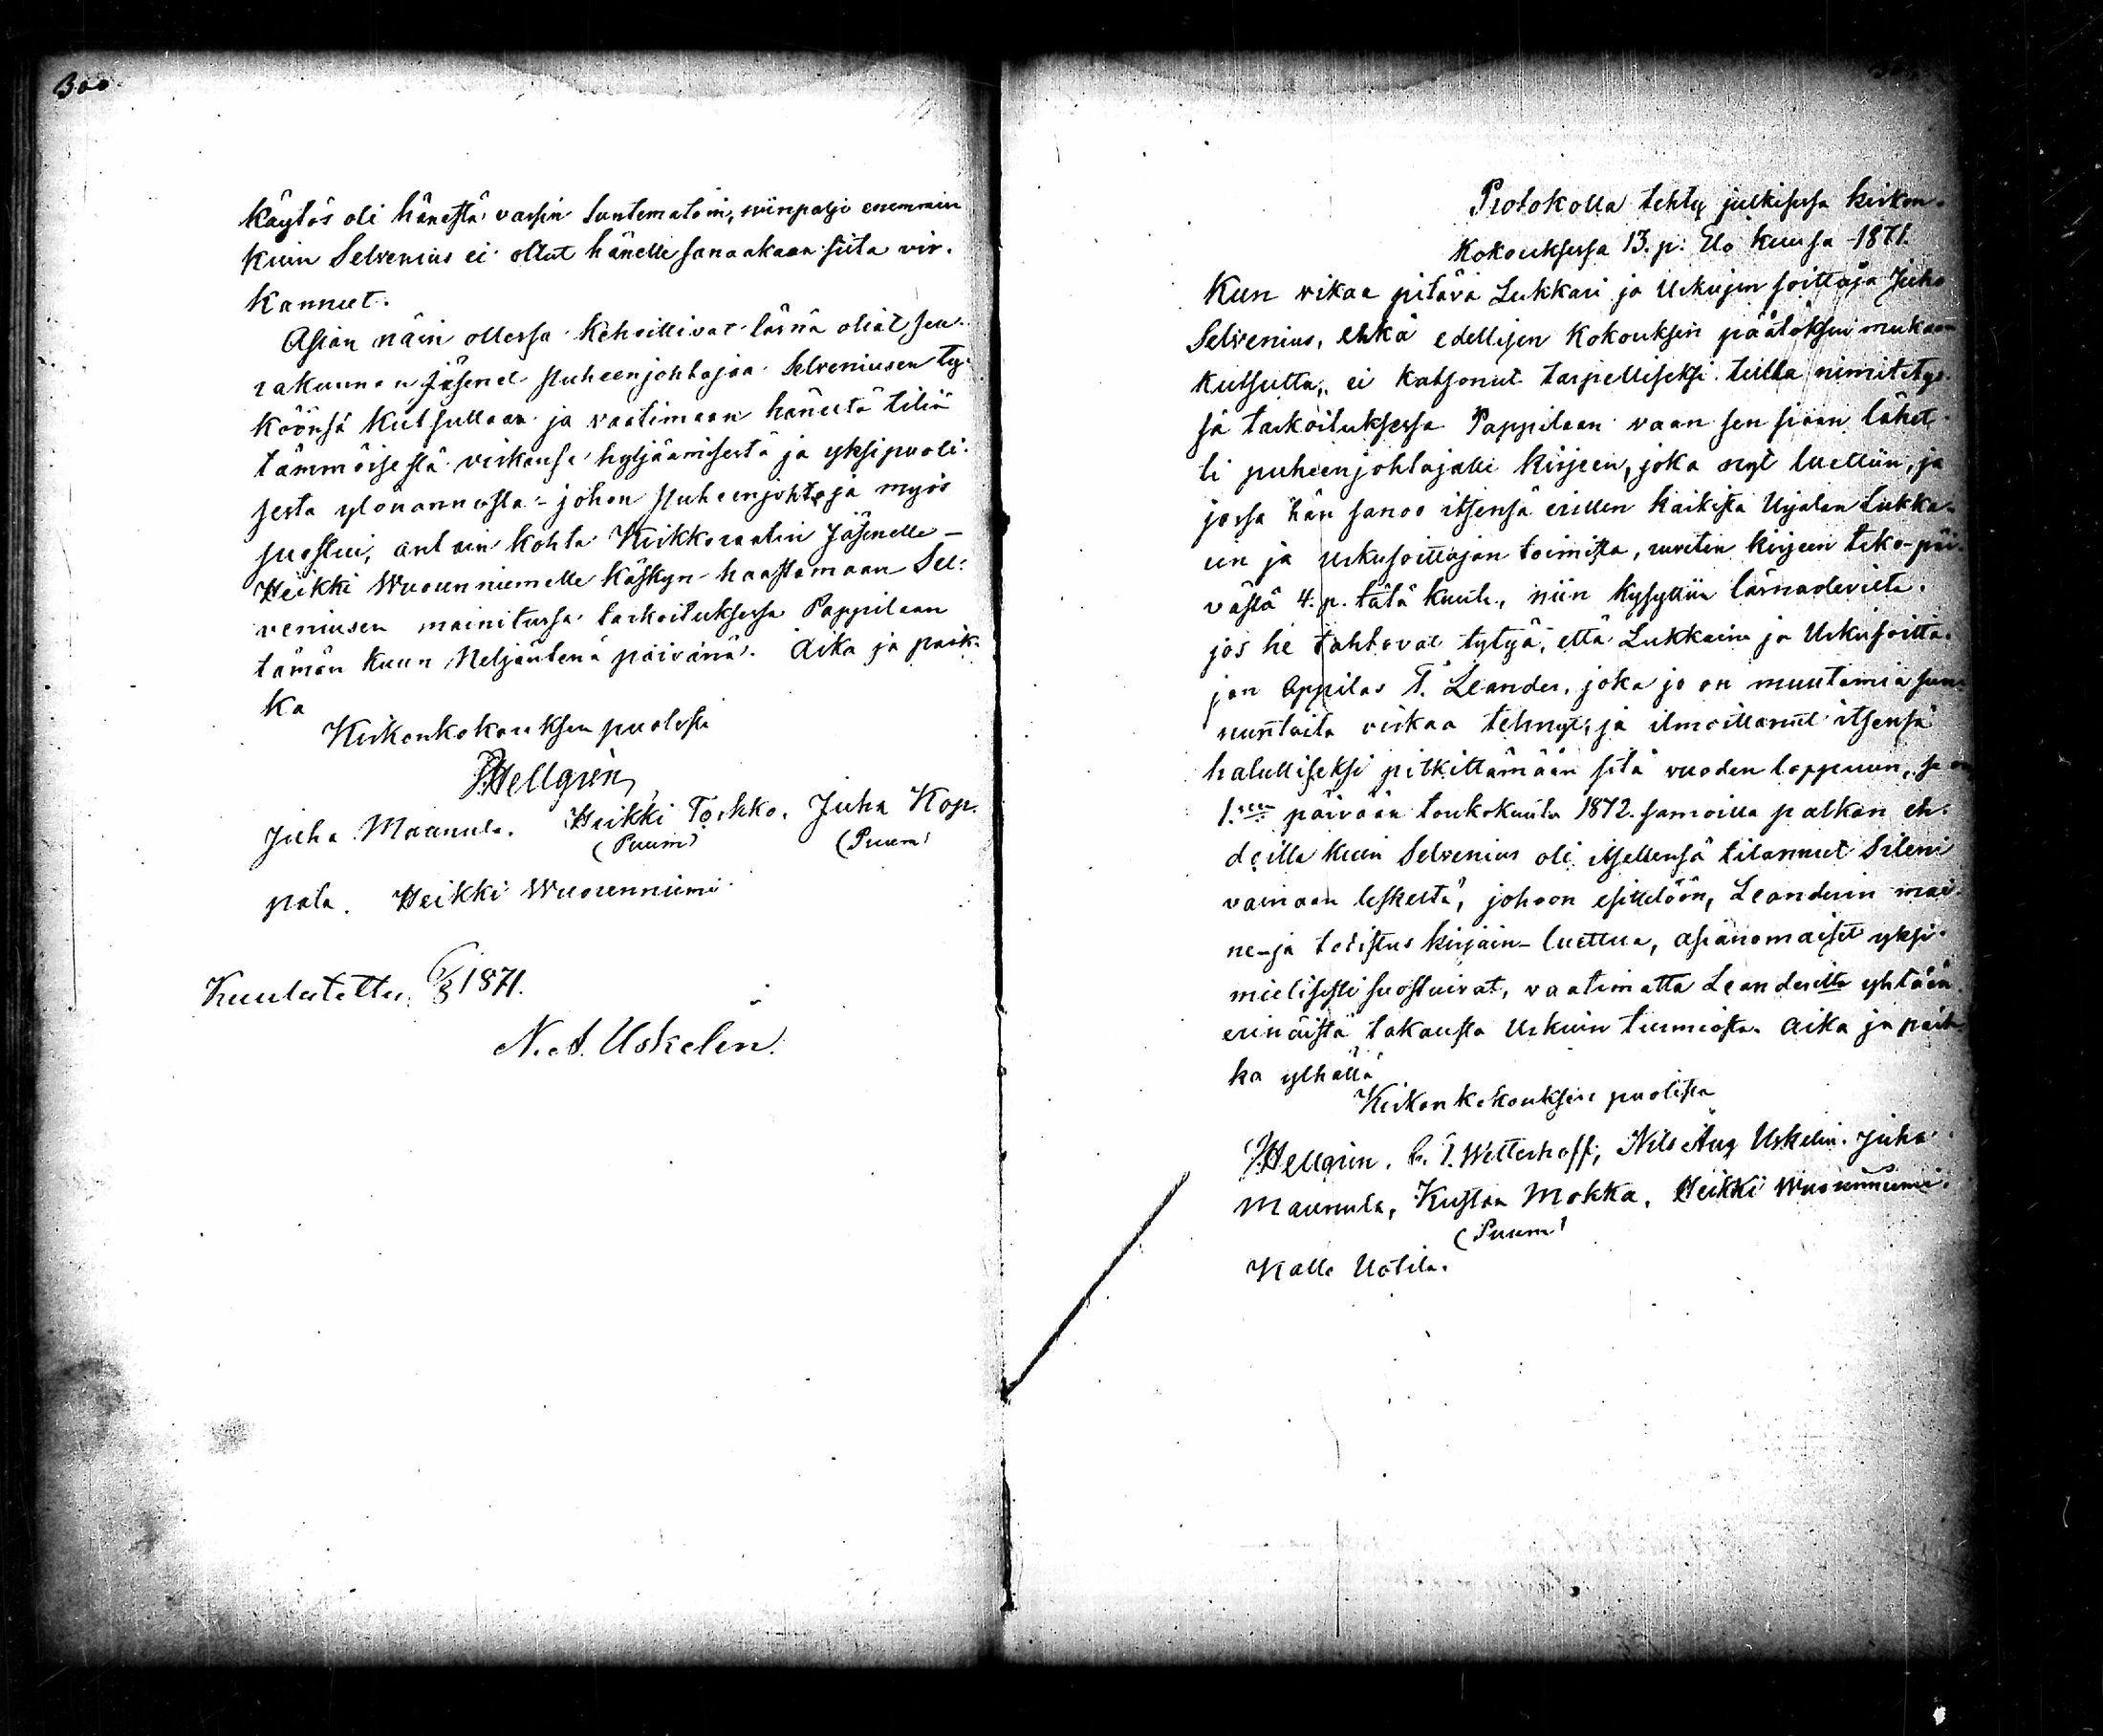 300
Käytös oli hänestä varsin tuntematoin, niinpaljo enemmin
kuin Selvenius ei ollut hänelle sanaakaan siitä vir-
kannut.
Asian näin ollessa kehoittivat läsnä oliat seu-
rakunnan Jäsenet Puheenjohtajaa Selveniusen ty-
köönsä kutsuttaan ja vaatimaan häneltä tiliä
tämmöisestä virkansa hyljäämisestä ja yksipuoli-
sesta ylönannosta - johon Puheenjohtaja myös
suostui, antain kohta Kirkkoraatin Jäsenelle -
Heikki Wuorenniemelle Käskyn haastamaan Sel-
veniusen mainitussa tarkoituksessa Pappilaan
tämän kuun Neljäntenä päivänä. Aika ja paik-
ka
Kirkonkokouksen puolesta
Hellgrén
Juha Maunula. Heikki Torkko. Juha Kop-
(Puum) (Puum)
pala. Heikki Wuorenniemi
Kuulutettu 6/8 1871.
N. A. Uskelin.
Protokolla tehty julkisessa kirkon-
Kokouksessa 13. p: Elo kuusa 1871.
Kun virkaa pitävä Lukkari ja Urkujen soittaja Juho
Selvenius, ehkä edellisen Kokouksen päätöksen mukaan
kutsuttu, ei katsonut tarpelliseksi tulla nimitetys-
sä tarkoituksessa Pappilaan vaan sen siaan lähet-
ti puheenjohtajalle kirjeen, joka nyt luettiin, ja
jossa hän sanoo itsensä erillen kaikista Urjalan Lukka-
rin ja Urkusoittajan toimista, ruveten kirjeen teko-päi-
västä 4. p. tätä kuuta, niin kysyttiin läsnäolevilta.
jos he tahtovat tytyä, että Lukkarin ja Urkusoitta-
jan Oppilas F. Leander, joka jo on muutamia sun-
nuntaita virkaa tehnyt, ja ilmoittanut itsensä
halulliseksi pitkittämään sitä vuoden loppuun, se on
1.sen päivään toukokuuta 1872. samoilla palkan eh-
doilla kuin Selvenius oli itsellensä tilannut Sileni
vainaan leskeltä, johoon esittelöön, Leanderin mai-
ne-ja todistus kirjain luettua, asianomaiset yksi-
mielisesti suostuivat, vaatimatta Leanderilta yhtään
erinäistä takausta Urkuin turmiosta. Aika ja paik-
ka ylhällä
Kirkonkokouksen puolesta
Hellgrén. C. T. Wetterhoff, Nils Aug Uskelin. Juha
Maunula, Kustaa Mokka, Heikki Wuorenniemi.
(Puum)
Kalle Uotila.